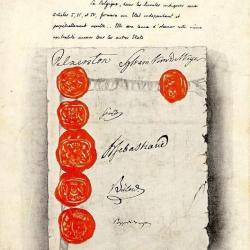 La Belgique, dans les limites indiquées aux
articles I, II, et IV, formera un Etat indépendant et
perpétuellement neutre. Elle sera tenue d'observer cette même
neutralité envers tous les autres Etats
Palmerston Sylvain Van de Weyer
Senfft
H Sebastiani
Bülow
Pozzo di Borgo